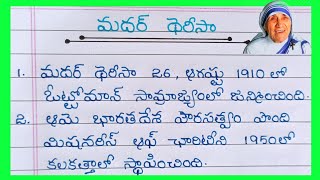 మదర్ థెరీసా
1. మదర్ థెరీసా 26, ఆగష్టు 1910 లో
ఒట్టోమాన్ సామ్రాజ్యంలో జన్మించింది.
2. ఆమె భారతదేశ పౌరసత్వం పొంది
మిషనరీస్ ఆఫ్ ఛారిటీని 1950లో
కలకత్తాలో స్థాపించింది.